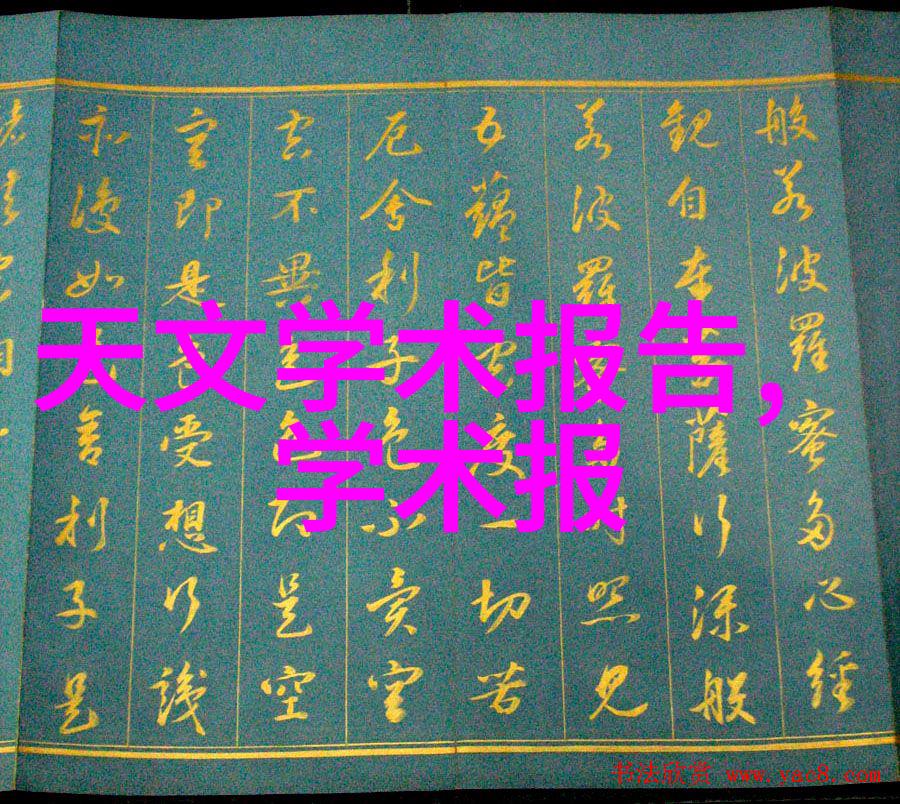 般若波羅蜜多心經
觀自在菩薩行深般
若波羅蜜多時照見
五蘊皆空度一切苦
厄舍利子色不異空
空不異色色即是空
空即是色受想行識
亦復如是舍利子是
天文学术报告，
学术报
书法欣赏 www.yac8.com